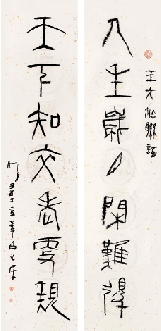 人生歲月閑難得
王文治聯語
天下知交老更親